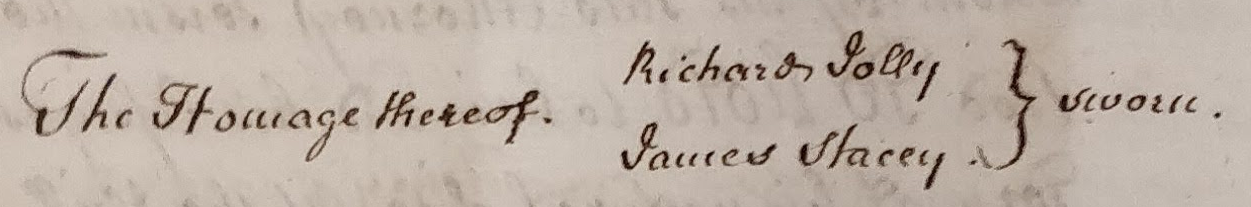 The Homage thereof.
Richard Jolly
James Stacey.
} sworn.